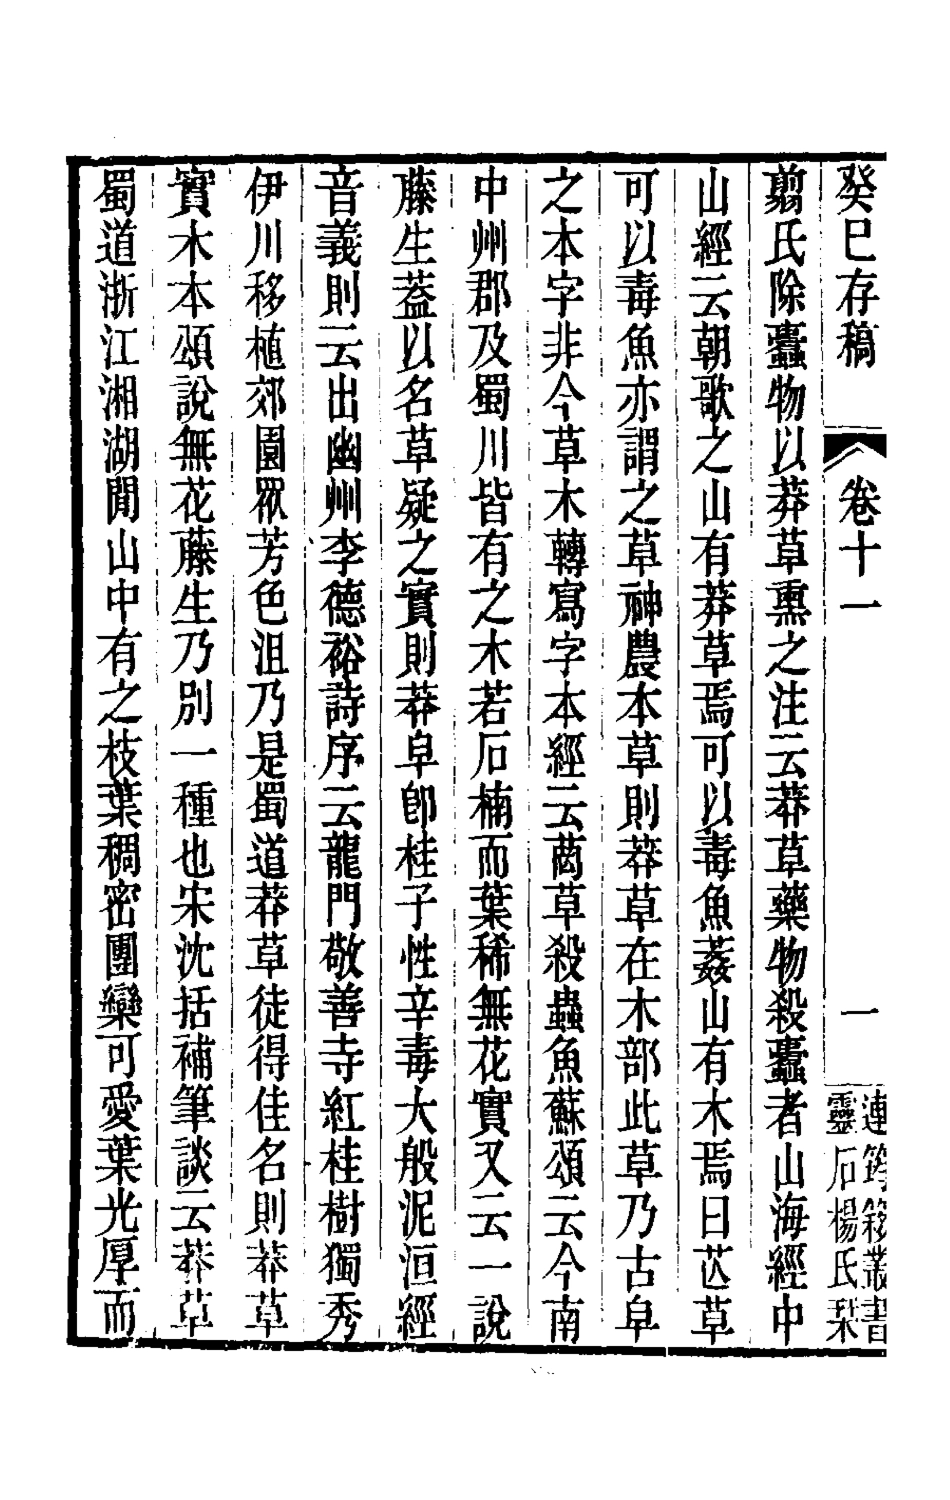 癸巳存稿 卷十一 一 連筠簃叢書
靈石楊氏栞
翦氏除蠹物以莽草熏之注云莽草藥物殺蠹者山海經中
山經云朝歌之山有莽草焉可以毒魚葌山有木焉曰芒草
可以毒魚亦謂之草神農本草則莽草在木部此草乃古皁
之本字非今草木轉寫字本經云䓞草殺蟲魚蘇頌云今南
中州郡及蜀川皆有之木若石楠而葉稀無花實又云一說
藤生葢以名草疑之實則莽皁卽桂子性辛毒大般泥洹經
音義則云出幽州李德裕詩序云龍門敬善寺紅桂樹獨秀
伊川移植郊園眾芳色沮乃是蜀道莽草徒得佳名則莽草
實木本頌說無花藤生乃別一種也宋沈括補筆談云莽草
蜀道浙江湘湖閒山中有之枝葉稠密團欒可愛葉光厚而